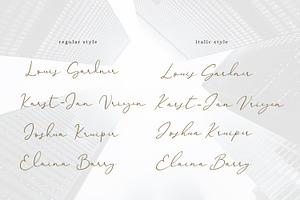 regular style
italic style
Louis Gardner
Louis Gardner
Karst-Jan Vriezen
Karst-Jan Vriezen
Joshua Kruiper
Joshua Kruiper
Elaina Barry
Elaina Barry